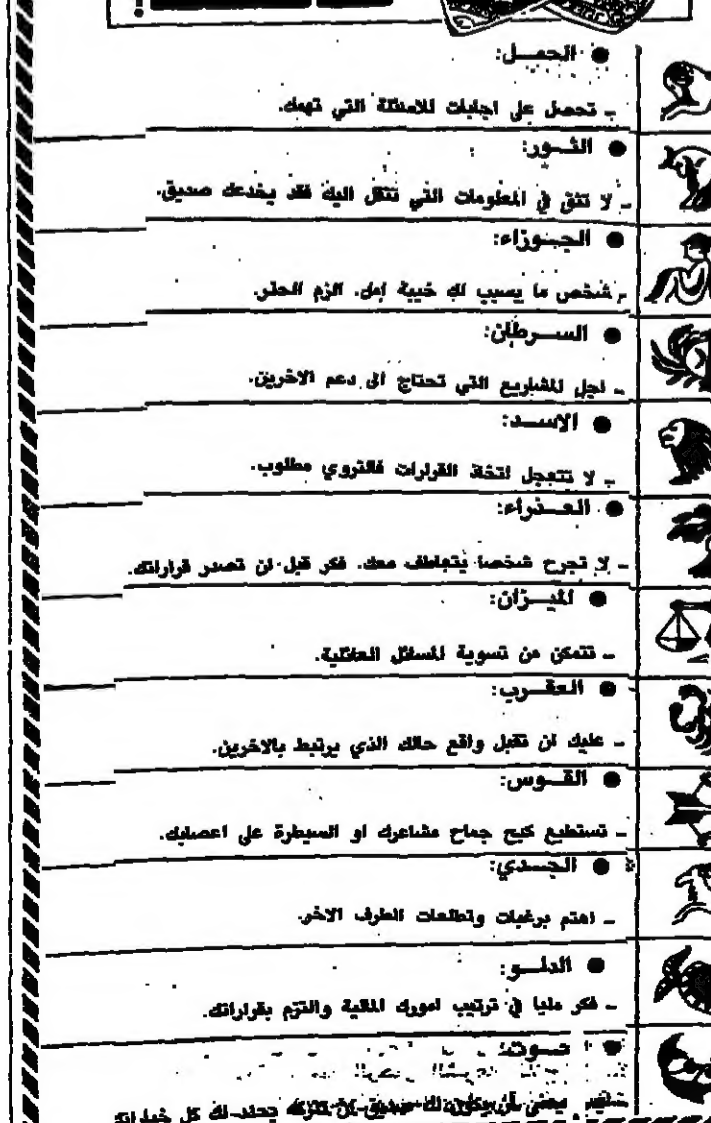 ● الحمـــل:
ـ تحصل على اجابات للاسئلة التي تهمك.
● الثـــور:
ـ لا تثق في المعلومات التي تنقل اليك فقد يخدعك صديق.
● الجـــوزاء:
ـ شخص ما يسبب لك خيبة امل. الزم الحذر.
● الســـرطان:
ـ اجل المشاريع التي تحتاج الى دعم الاخرين.
● الاســـد:
ـ لا تتعجل اتخاذ القرارات فالتروي مطلوب.
● العـــذراء:
ـ لا تجرح شخصا يتعاطف معك. فكر قبل ان تصدر قراراتك.
● الميـــزان:
ـ تتمكن من تسوية المسائل العائلية.
● العقـــرب:
ـ عليك ان تقبل واقع حالك الذي يرتبط بالاخرين.
● القـــوس:
ـ تستطيع كبح جماح مشاعرك او السيطرة على اعصابك.
● الجـــدي:
ـ اهتم برغبات وتطلعات الطرف الاخر.
● الدلـــو:
ـ فكر مليا في ترتيب امورك المالية والتزم بقراراتك.
صديق
لك كل